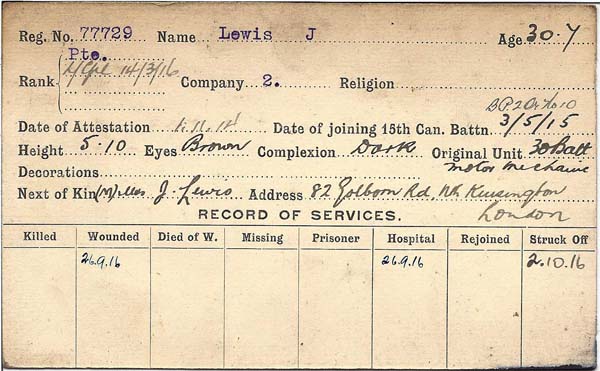 Reg. No. 77729 Name Lewis J Age 30.7
Pte.
Rank L/Cpl 14/3/16 Company 2. Religion
B.P.2
Date of Attestation 1.11.14 Date of joining 15th Can. Battn 3/5/15
Height 5.10 Eyes Brown Complexion Dark Original Unit 30 Batt
Decorations motor mechanic
Next of Kin (M) Mrs J. Lewis Address 82 Golborn Rd, Nth Kensington
London
RECORD OF SERVICES.
Killed Wounded Died of W. Missing Prisoner Hospital Rejoined Struck Off
26.9.16 26.9.16 2.10.16